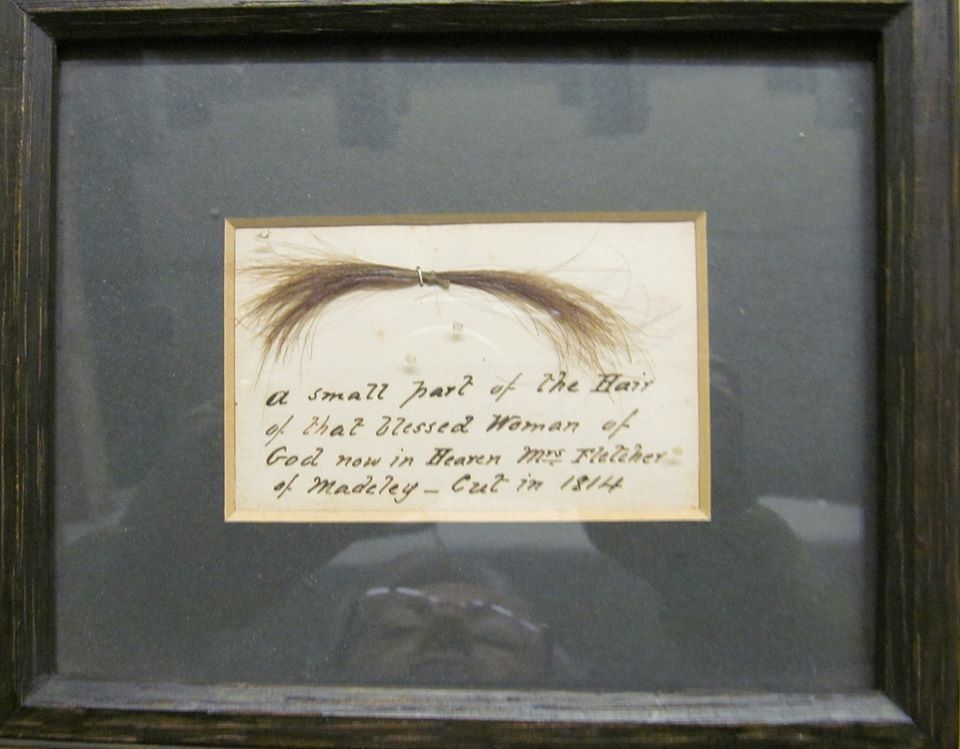 a small part of the Hair
of that blessed Woman of
God now in Heaven Mrs Fletcher
of Madeley - Cut in 1814